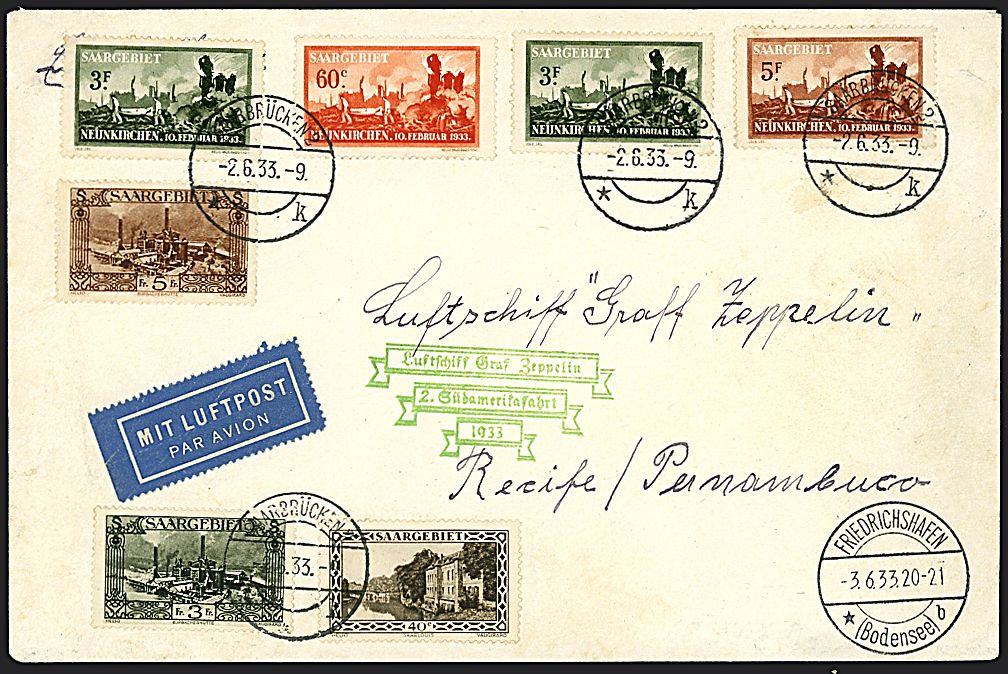 SAARGEBIET
3F
NEUNKIRCHEN, 10. FEBRUAR 1933.
SAARGEBIET
60c
NEUNKIRCHEN, 10. FEBRUAR 1933.
SAARGEBIET
3F
NEUNKIRCHEN, 10. FEBRUAR 1933.
SAARGEBIET
5F
NEUNKIRCHEN, 10. FEBRUAR 1933.
-2.6.33.-9.
* k
SAARBRÜCKEN 2
-2.6.33.-9.
* k
SAARBRÜCKEN 2
-2.6.33.-9.
* k
S SAARGEBIET S
Fr. 5 Fr.
HELIO BURBACHERHÜTTE VAUGIRARD
Luftschiff "Graff Zeppelin"
Luftschiff Graf Zeppelin
2. Südamerikafahrt
1933
MIT LUFTPOST
PAR AVION
Recife / Pernambuco
S SAARGEBIET S
Fr. 3 Fr.
BURBACHERHÜTTE VAUGIRARD
SAARBRÜCKEN
.33.-
SAARGEBIET
40c
HELIO SAARLOUIS VAUGIRARD
FRIEDRICHSHAFEN
-3.6.33.20-21
* (Bodensee) b